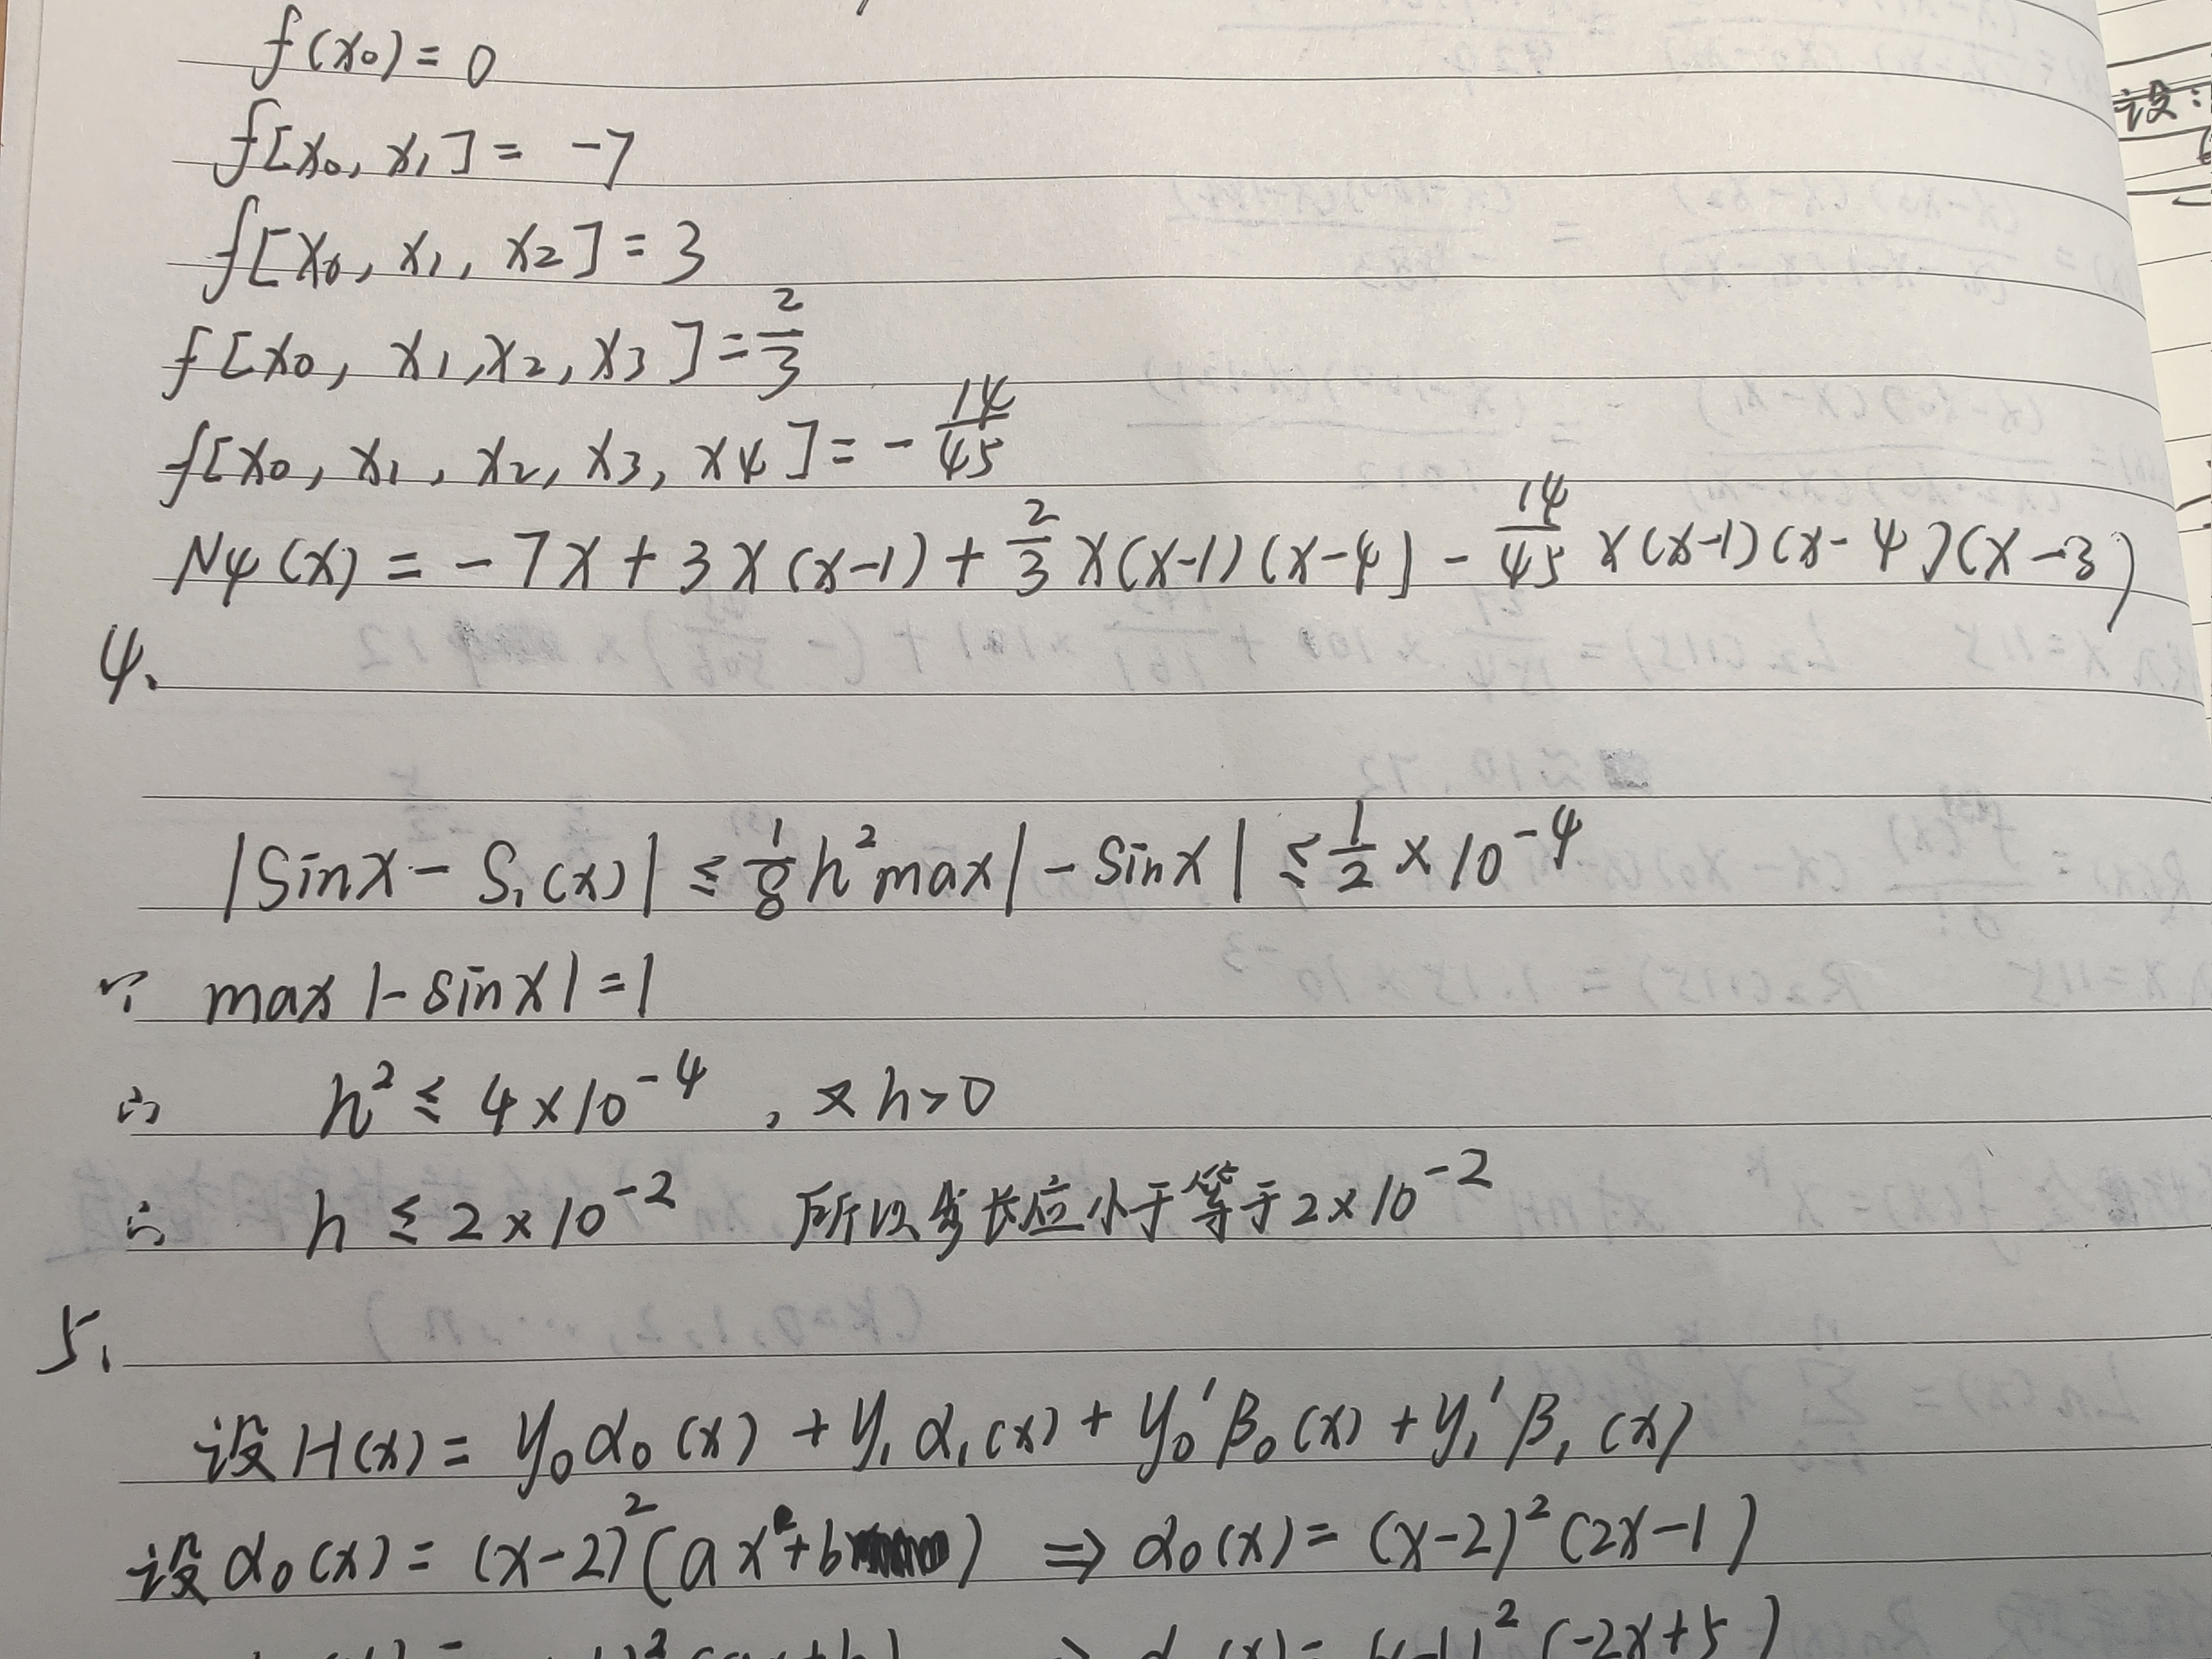 f(x₀) = 0
f[x₀, x₁] = -7
f[x₀, x₁, x₂] = 3
f[x₀, x₁, x₂, x₃] = 2/3
f[x₀, x₁, x₂, x₃, x₄] = - 14/45
N₄(x) = -7x + 3x(x-1) + 2/3 x(x-1)(x-4) - 14/45 x(x-1)(x-4)(x-3)
4.
|sinx - S₁(x)| ≤ 1/8 h² max|-sinx| ≤ 1/2 × 10⁻⁴
∵ max|-sinx| = 1
∴ h² ≤ 4×10⁻⁴, 又h>0
∴ h ≤ 2×10⁻² 所以步长应小于等于2×10⁻²
5.
设H(x) = y₀α₀(x) + y₁α₁(x) + y₀'β₀(x) + y₁'β₁(x)
设α₀(x) = (x-2)²(ax+b) ⇒ α₀(x) = (x-2)²(2x-1)
(-2x+5)
设: